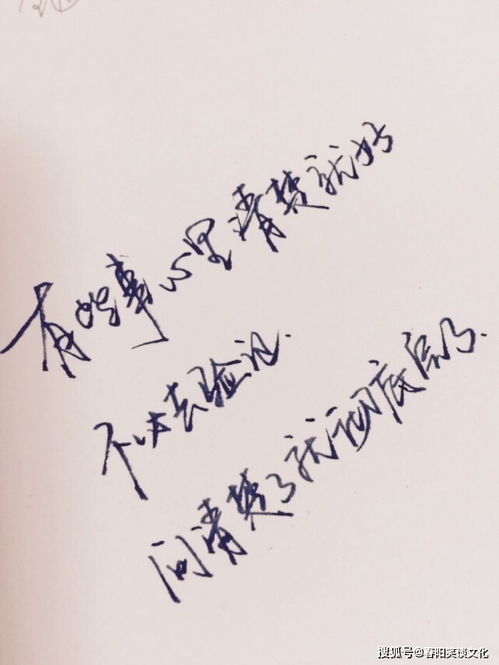 有些事心里清楚就好
不必去验证.
问清楚了就彻底了.
搜狐号@春阳笑谈文化